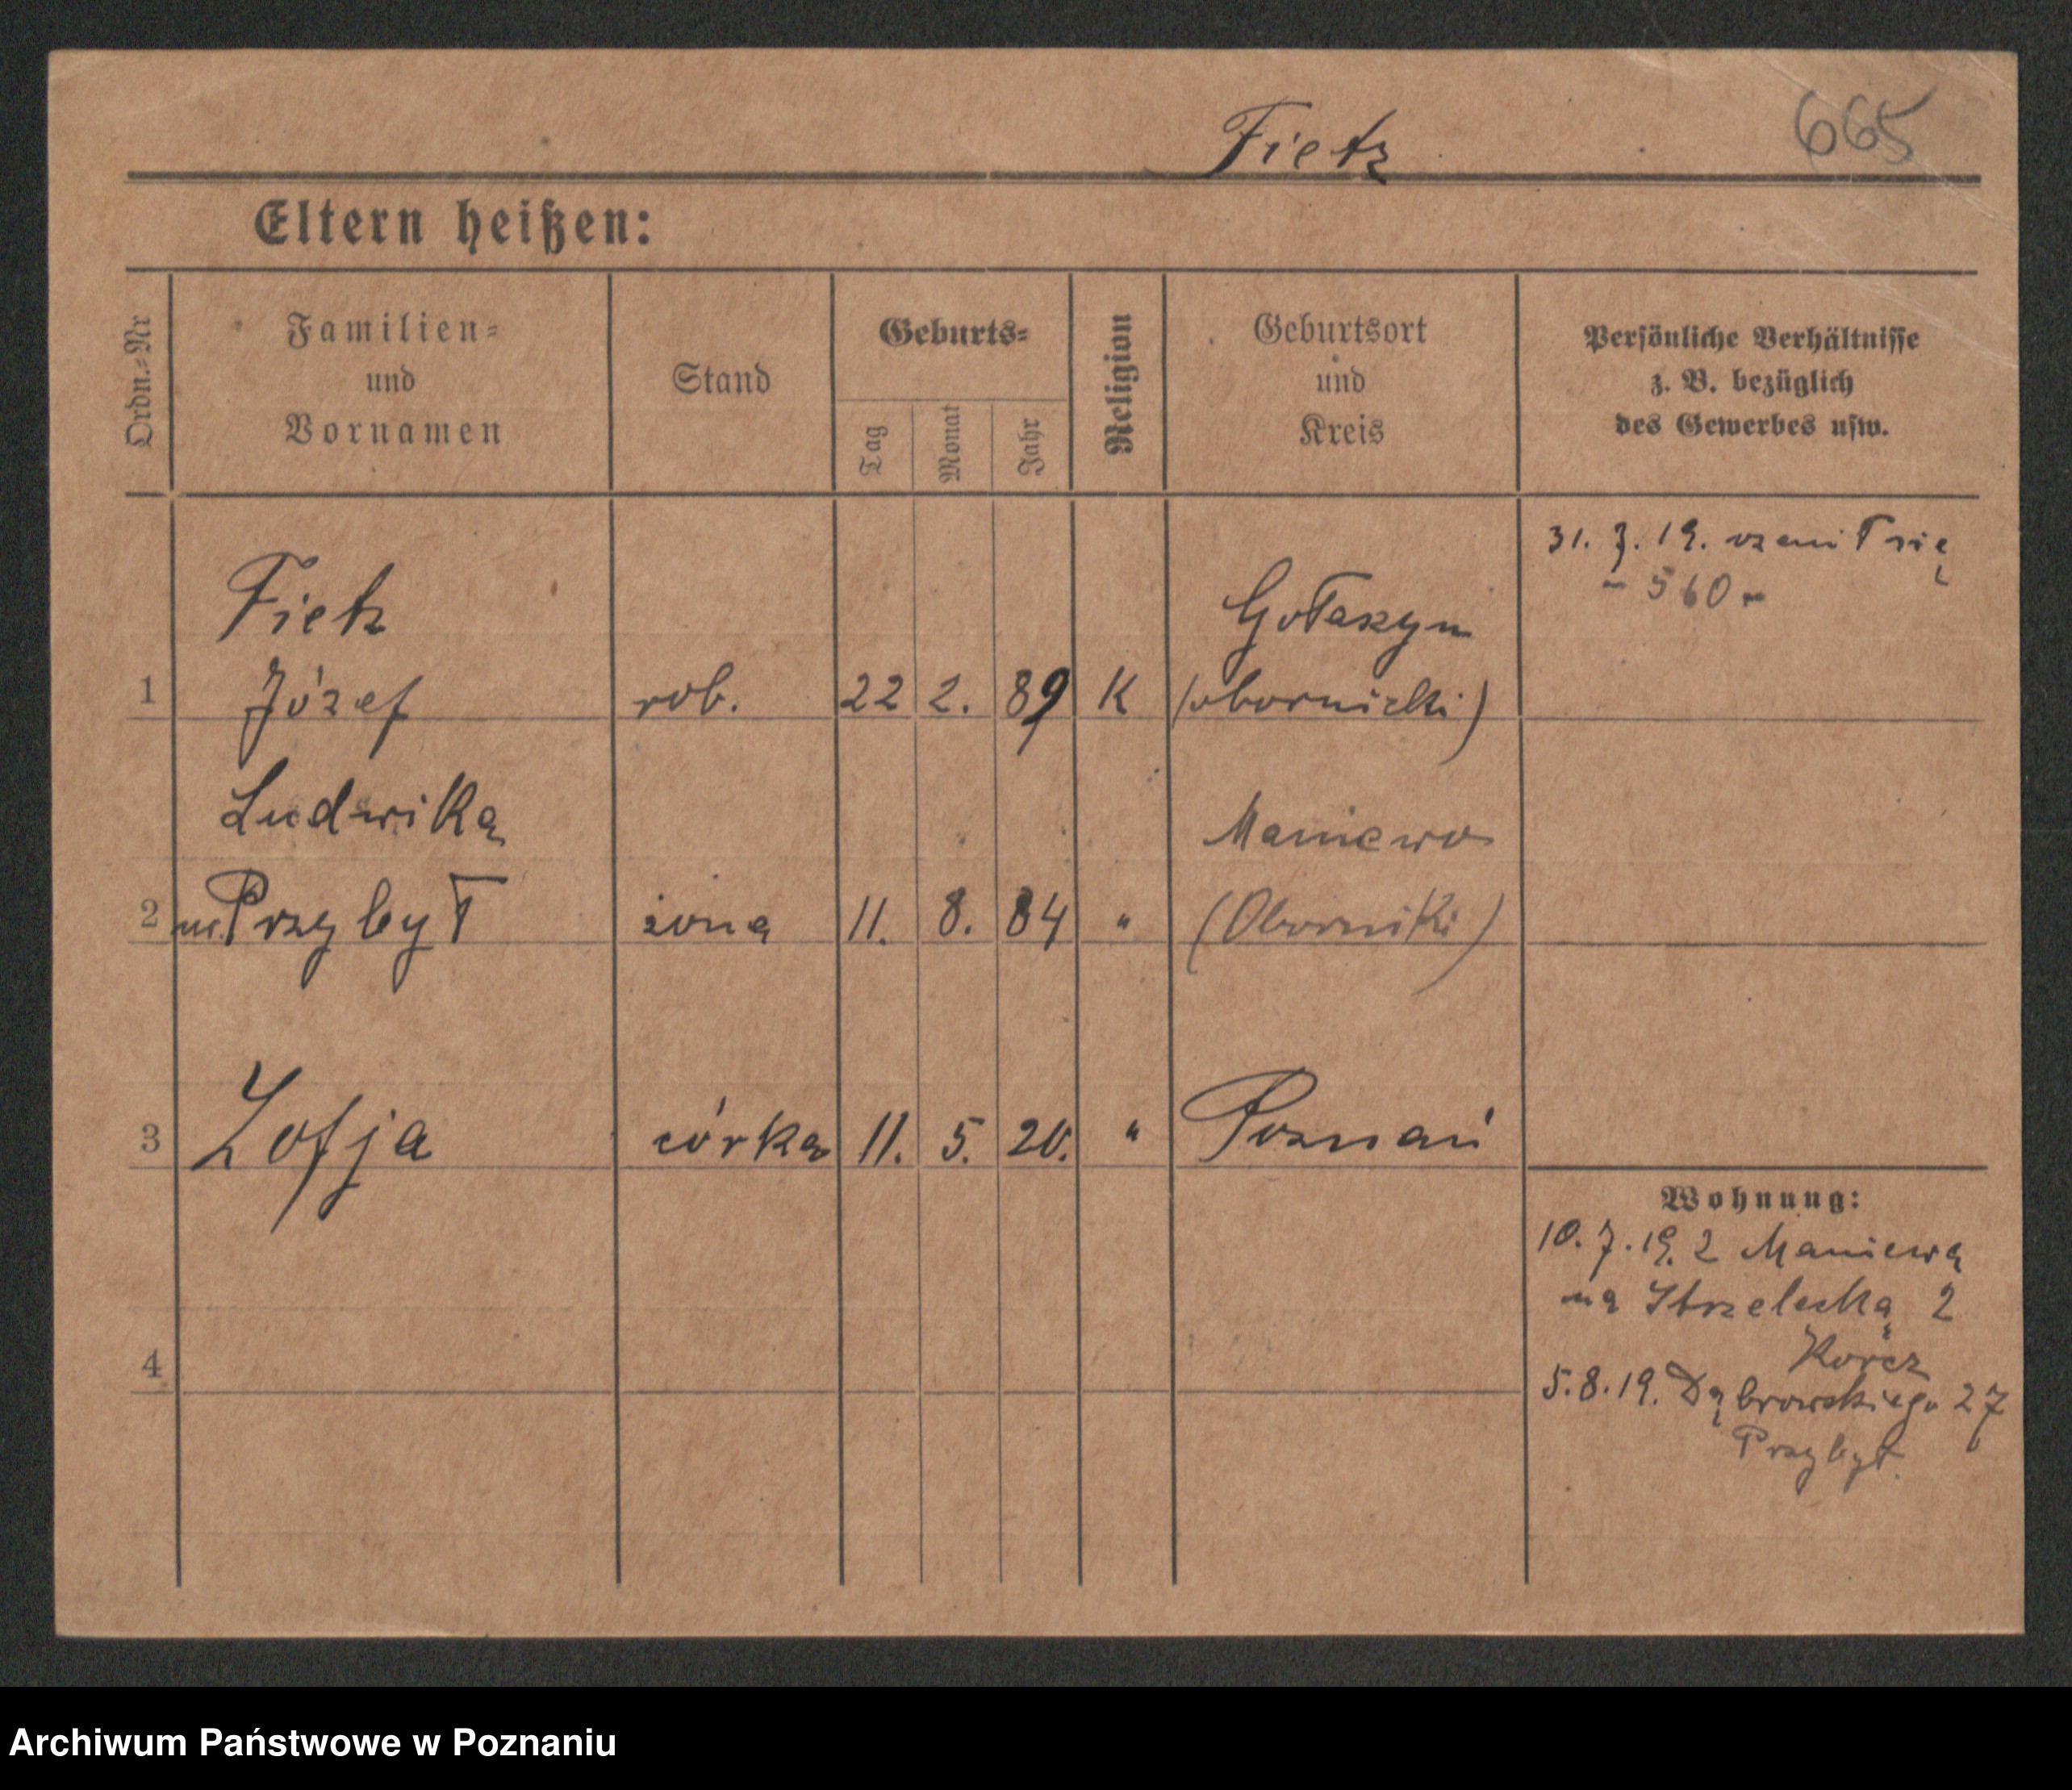 Fietz 665
Eltern heißen:
Ordn.=Nr
Familien=
und
Vornamen
Stand
Geburts=
Tag
Monat
Jahr
Religion
Geburtsort
und
Kreis
Persönliche Verhältnisse
z. B. bezüglich
des Gewerbes usw.
31. 7. 19. ożenił się
- 560 -
Fietz Gołaszyn
1 Józef rob. 22 2. 89 K (obornicki)
Ludwika Maniewo
2 ur. Przybył żona 11. 8. 84 " (Oborniki)
3 Zofja córka 11. 5. 20. " Poznań
Wohnung:
10. 7. 19. z Maniewa
na Strzelecka 2
4
5. 8. 19. Dąbrowskiego 27
Przybył